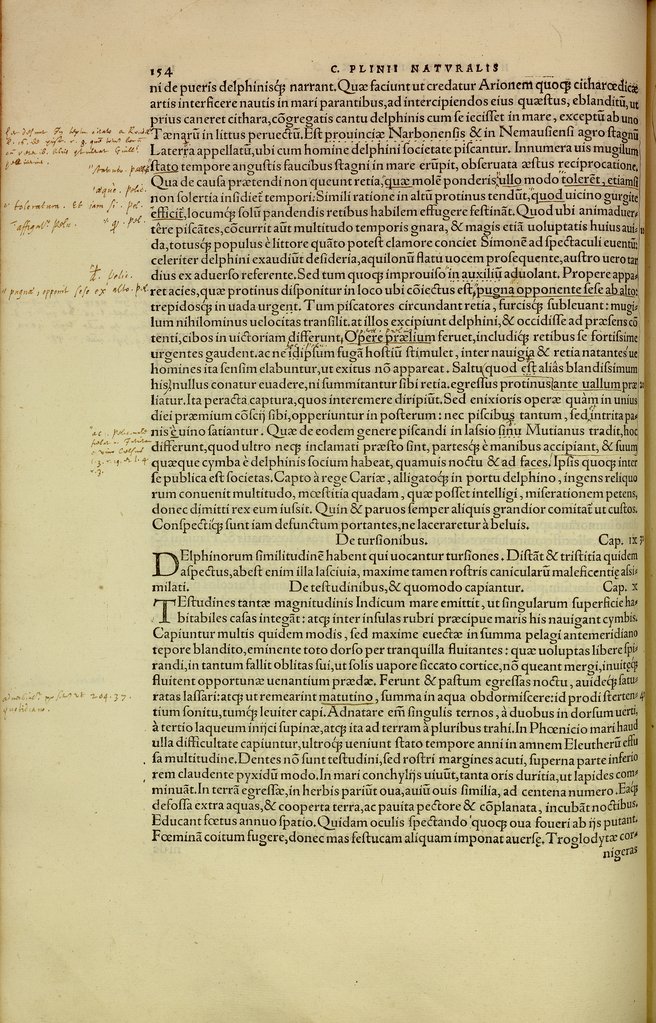 154
C. PLINII NATVRALIS
ni de pueris delphinisq́; narrant. Quæ faciunt ut credatur Arionem quoq; citharœdicæ
artis interficere nautis in mari parantibus, ad intercipiendos eius quæstus, eblanditū, ut
prius caneret cithara, cōgregatis cantu delphinis cum se iecisset in mare, exceptū ab uno
Tænarū in littus peruectū. Est prouinciæ Narbonensis & in Nemausensi agro stagnū
Laterra appellatū, ubi cum homine delphini societate piscantur. Innumera uis mugilum
stato tempore angustis faucibus stagni in mare erūpit, obseruata æstus reciprocatione.
Qua de causa prætendi non queunt retia, quæ molē ponderis, ullo modo tolerēt, etiamsi
non solertia insidiet tempori. Simili ratione in altū protinus tendūt, quod uicino gurgite
efficit, locumq́; solū pandendis retibus habilem effugere festināt. Quod ubi animaduer-
tēre piscātes, cōcurrit aūt multitudo temporis gnara, & magis etiā uoluptatis huius aui-
da, totusq́; populus è littore quāto potest clamore conciet Simonē ad spectaculi euentū:
celeriter delphini exaudiūt desideria, aquilonū flatu uocem prosequente, austro uero tar
dius ex aduerso referente. Sed tum quoq; improuiso in auxiliū aduolant. Propere appa-
ret acies, quæ protinus disponitur in loco ubi cōiectus est, pugna opponente sese ab alto:
trepidosq́; in uada urgent. Tum piscatores circundant retia, furcisq́; subleuant: mugi-
lum nihilominus uelocitas transilit. at illos excipiunt delphini, & occidisse ad præsens cō
tenti, cibos in uictoriam differunt, Opere prælium feruet, includiq́; retibus se fortissime
urgentes gaudent. ac ne idipsum fugā hostiū stimulet, inter nauigia & retia natantes ue
homines ita sensim elabuntur, ut exitus nō appareat. Saltu quod est aliâs blandissimum
his, nullus conatur euadere, ni summitantur sibi retia. egressus protinus ante uallum præ
liatur. Ita peracta captura, quos interemere diripiūt. Sed enixioris operæ quàm in unius
diei præmium cōscij sibi, opperiuntur in posterum: nec piscibus tantum, sed intrita pa-
nis è uino satiantur. Quæ de eodem genere piscandi in Iassio sinu Mutianus tradit, hoc
differunt, quod ultro neq; inclamati præsto sint, partesq́; è manibus accipiant, & suum
quæque cymba è delphinis socium habeat, quamuis noctu & ad faces. Ipsis quoq; inter
se publica est societas. Capto à rege Cariæ, alligatoq́; in portu delphino, ingens reliquo
rum conuenit multitudo, mœstitia quadam, quæ posset intelligi, miserationem petens,
donec dimitti rex eum iussit. Quin & paruos semper aliquis grandior comitat ut custos.
Conspectiq́; sunt iam defunctum portantes, ne laceraretur à beluis.
De tursionibus. Cap. ix
DElphinorum similitudinē habent qui uocantur tursiones. Distāt & tristitia quidem
aspectus, abest enim illa lasciuia, maxime tamen rostris canicularū maleficentię assi-
milati. De testudinibus, & quomodo capiantur. Cap. x
TEstudines tantæ magnitudinis Indicum mare emittit, ut singularum superficie ha-
bitabiles casas integāt: atq; inter insulas rubri præcipue maris his nauigant cymbis.
Capiuntur multis quidem modis, sed maxime euectæ in summa pelagi antemeridiano
tepore blandito, eminente toto dorso per tranquilla fluitantes: quæ uoluptas libere spi-
randi, in tantum fallit oblitas sui, ut solis uapore siccato cortice, nō queant mergi, inuitęq́;
fluitent opportunæ uenantium prædæ. Ferunt & pastum egressas noctu, auideq́; satu
ratas lassari: atq; ut remearint matutino, summa in aqua obdormiscere: id prodi sterten
tium sonitu, tumq́; leuiter capi. Adnatare em̄ singulis ternos, à duobus in dorsum uerti,
à tertio laqueum inijci supinæ, atq; ita ad terram à pluribus trahi. In Phœnicio mari haud
ulla difficultate capiuntur, ultroq́; ueniunt stato tempore anni in amnem Eleutherū effu
sa multitudine. Dentes nō sunt testudini, sed rostri margines acuti, superna parte inferio
rem claudente pyxidū modo. In mari conchylijs uiuūt, tanta oris duritia, ut lapides com-
minuāt. In terrā egressæ, in herbis pariūt oua, auiū ouis similia, ad centena numero. Eaq́;
defossa extra aquas, & cooperta terra, ac pauita pectore & cōplanata, incubāt noctibus.
Educant fœtus annuo spatio. Quidam oculis spectando quoq; oua foueri ab ijs putant.
Fœminā coitum fugere, donec mas festucam aliquam imponat auersę. Troglodytæ cor-
nigeras